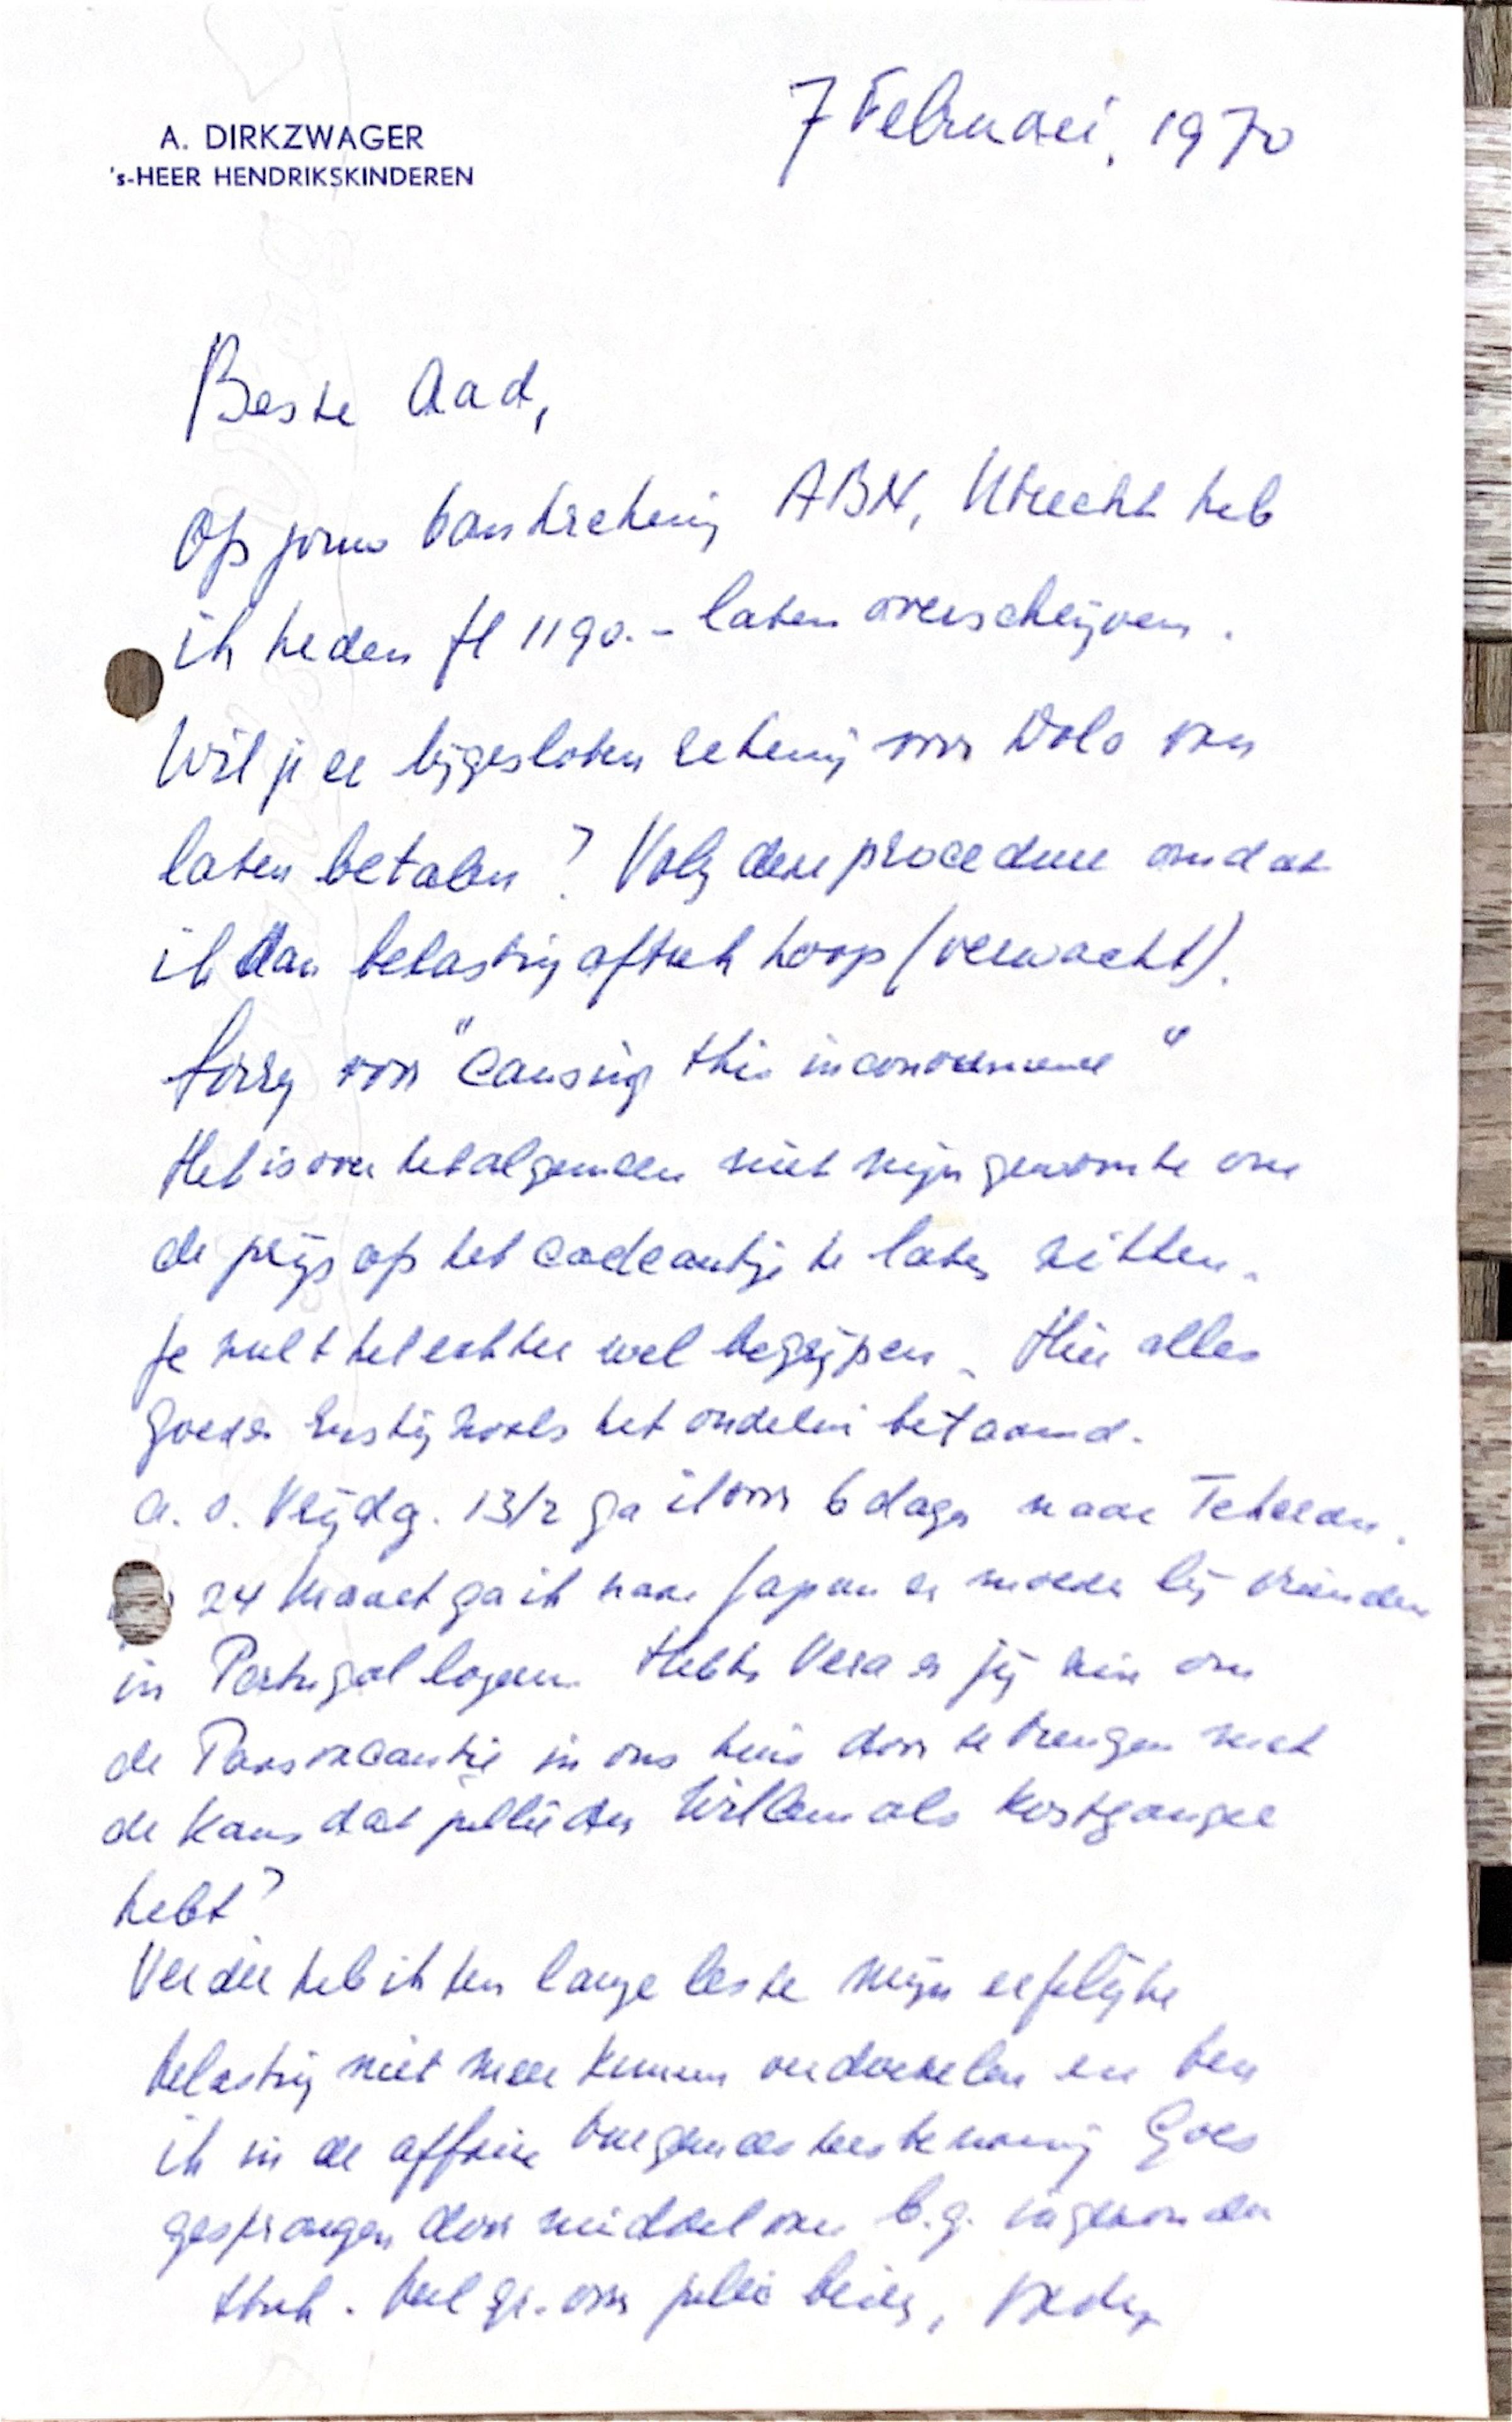 A. DIRKZWAGER
's-HEER HENDRIKSKINDEREN
7 Februari, 1970
Beste Aad,
Op jouw bankrekening ABN, Utrecht heb
ik heden fl 1190.- laten overschrijven.
Wil je er bijgesloten rekening voor Volo van
laten betalen? Volg deze procedure omdat
ik dan belasting aftrek hoop (verwacht).
Sorry voor "causing this inconvenience"
Het is over het algemeen niet mijn gewoonte om
de prijs op het cadeautje te laten zitten.
Je zult het echter wel begrijpen. Hier alles
goed en rustig zoals het ouderen betaamd.
a.s. Vrijdg. 13/2 ga ik voor 6 dagen naar Teheran.
24 Maart ga ik naar Japan en moeder bij vrienden
in Portugal logeren. Hebben Vera en jij zin om
de Paasvacantie in ons huis door te brengen met
de kans dat jullie dan Willem als kostganger
hebt?
Verder heb ik ten lange leste mijn erfelijke
belasting niet meer kunnen verdoezelen en ben
ik in de affaire burgemeestersbenoeming Goes
gesprongen door middel van b.g. ingezonden
stuk. Veel gr. voor jullie beiden, Vader